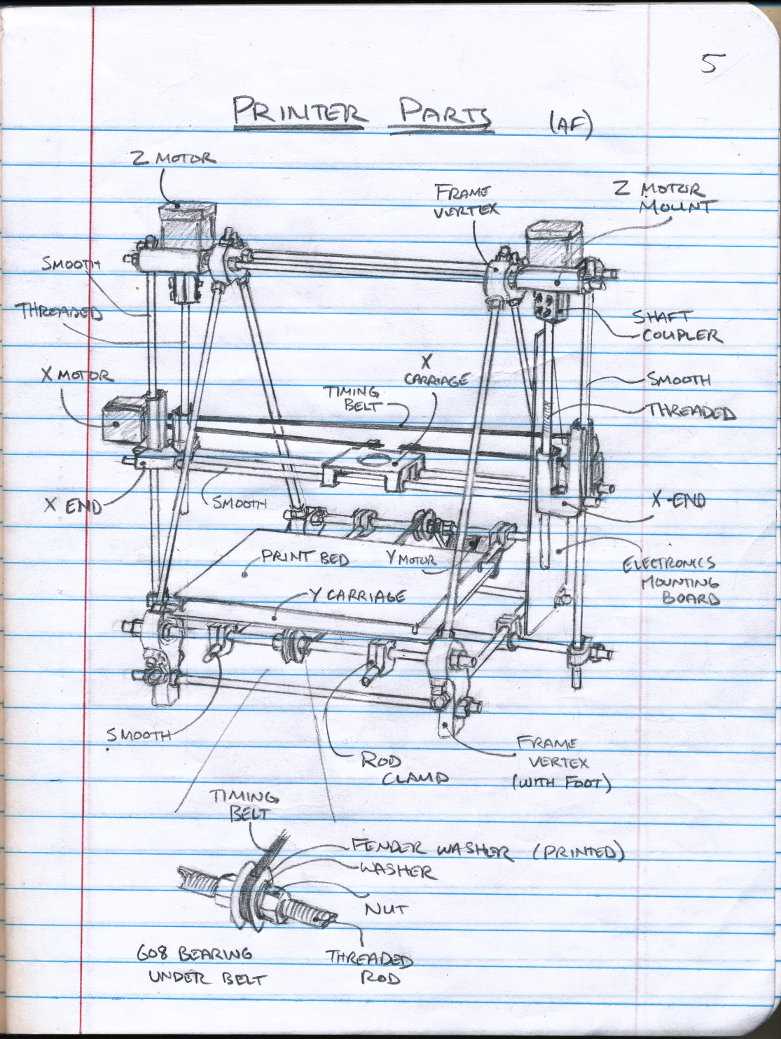 5
PRINTER PARTS (AF)
Z MOTOR
FRAME
VERTEX
Z MOTOR
MOUNT
SMOOTH
THREADED
SHAFT
COUPLER
X MOTOR
X
CARRIAGE
TIMING
BELT
SMOOTH
THREADED
X END
SMOOTH
X-END
PRINT BED
Y MOTOR
Y CARRIAGE
ELECTRONICS
MOUNTING
BOARD
SMOOTH
ROD
CLAMP
FRAME
VERTEX
(WITH FOOT)
TIMING
BELT
FENDER WASHER (PRINTED)
WASHER
NUT
608 BEARING
UNDER BELT
THREADED
ROD